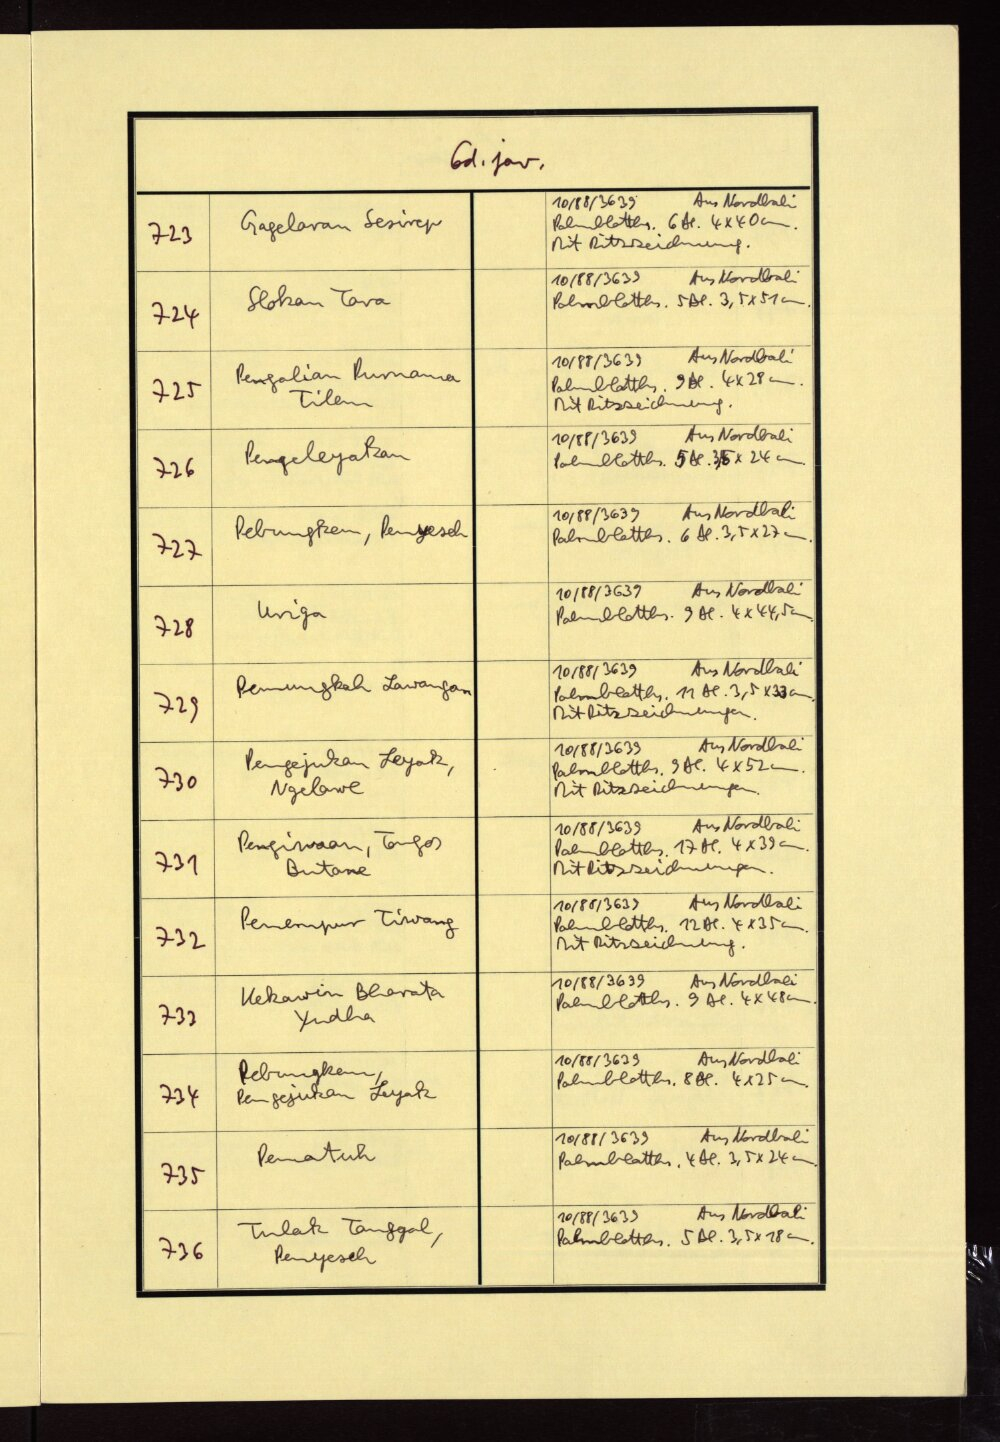 Cod. jav.
723 Gagelaran Sesirep 10/88/3639 Aus Nordbali
Palmblatths. 6 Bl. 4x40cm.
Mit Ritzzeichnung.
724 Slokan Tara 10/88/3639 Aus Nordbali
Palmblatths. 5 Bl. 3,5x51cm.
725 Pengalian Purnama 10/88/3639 Aus Nordbali
Tilem Palmblatths. 9 Bl. 4x28cm.
Mit Ritzzeichnung.
726 Pengeleyakan 10/88/3639 Aus Nordbali
Palmblatths. 5 Bl. 3,5 x 24 cm.
727 Pebungkem, Penyeseh 10/88/3639 Aus Nordbali
Palmblatths. 6 Bl. 3,5x27cm.
728 Uriga 10/88/3639 Aus Nordbali
Palmblatths. 9 Bl. 4x44,5cm.
729 Pemungkah Lawangan 10/88/3639 Aus Nordbali
Palmblatths. 11 Bl. 3,5x33cm.
Mit Ritzzeichnungen.
730 Pengejukan Leyak, 10/88/3639 Aus Nordbali
Ngelawe Palmblatths. 9 Bl. 4x52cm.
Mit Ritzzeichnungen.
731 Pengiwaan, Tangos 10/88/3639 Aus Nordbali
Butane Palmblatths. 17 Bl. 4x39cm.
Mit Ritzzeichnungen.
732 Penempur Tiwang 10/88/3639 Aus Nordbali
Palmblatths. 12 Bl. 4x35cm.
Mit Ritzzeichnung.
733 Kekawin Bharata 10/88/3639 Aus Nordbali
Yudha Palmblatths. 9 Bl. 4x48cm.
734 Pebungkem, 10/88/3639 Aus Nordbali
Pengejukan Leyak Palmblatths. 8 Bl. 4x25cm.
735 Pematuh 10/88/3639 Aus Nordbali
Palmblatths. 4 Bl. 3,5x24cm.
736 Tulak Tanggal, 10/88/3639 Aus Nordbali
Penyeseh Palmblatths. 5 Bl. 3,5x18cm.